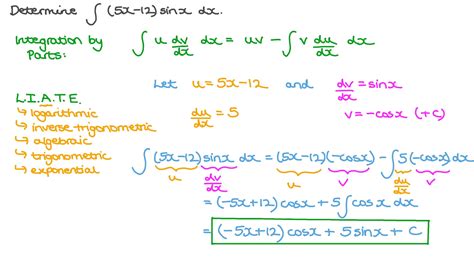 Determine ∫ (5x-12) sinx dx.
Integration by Parts: ∫ u dv/dx dx = uv - ∫ v du/dx dx
Let u = 5x-12 and dv/dx = sinx
L.I.A.T.E.
↳ logarithmic
du/dx = 5 v = -cosx (+c)
↳ inverse trigonometric
↳ algebraic
↳ trigonometric
↳ exponential
∫ (5x-12) sinx dx = (5x-12)(-cosx) - ∫ 5(-cosx) dx
u dv/dx u v du/dx v
= (-5x+12) cosx + 5 ∫ cosx dx
= (-5x+12) cosx + 5 sinx + C